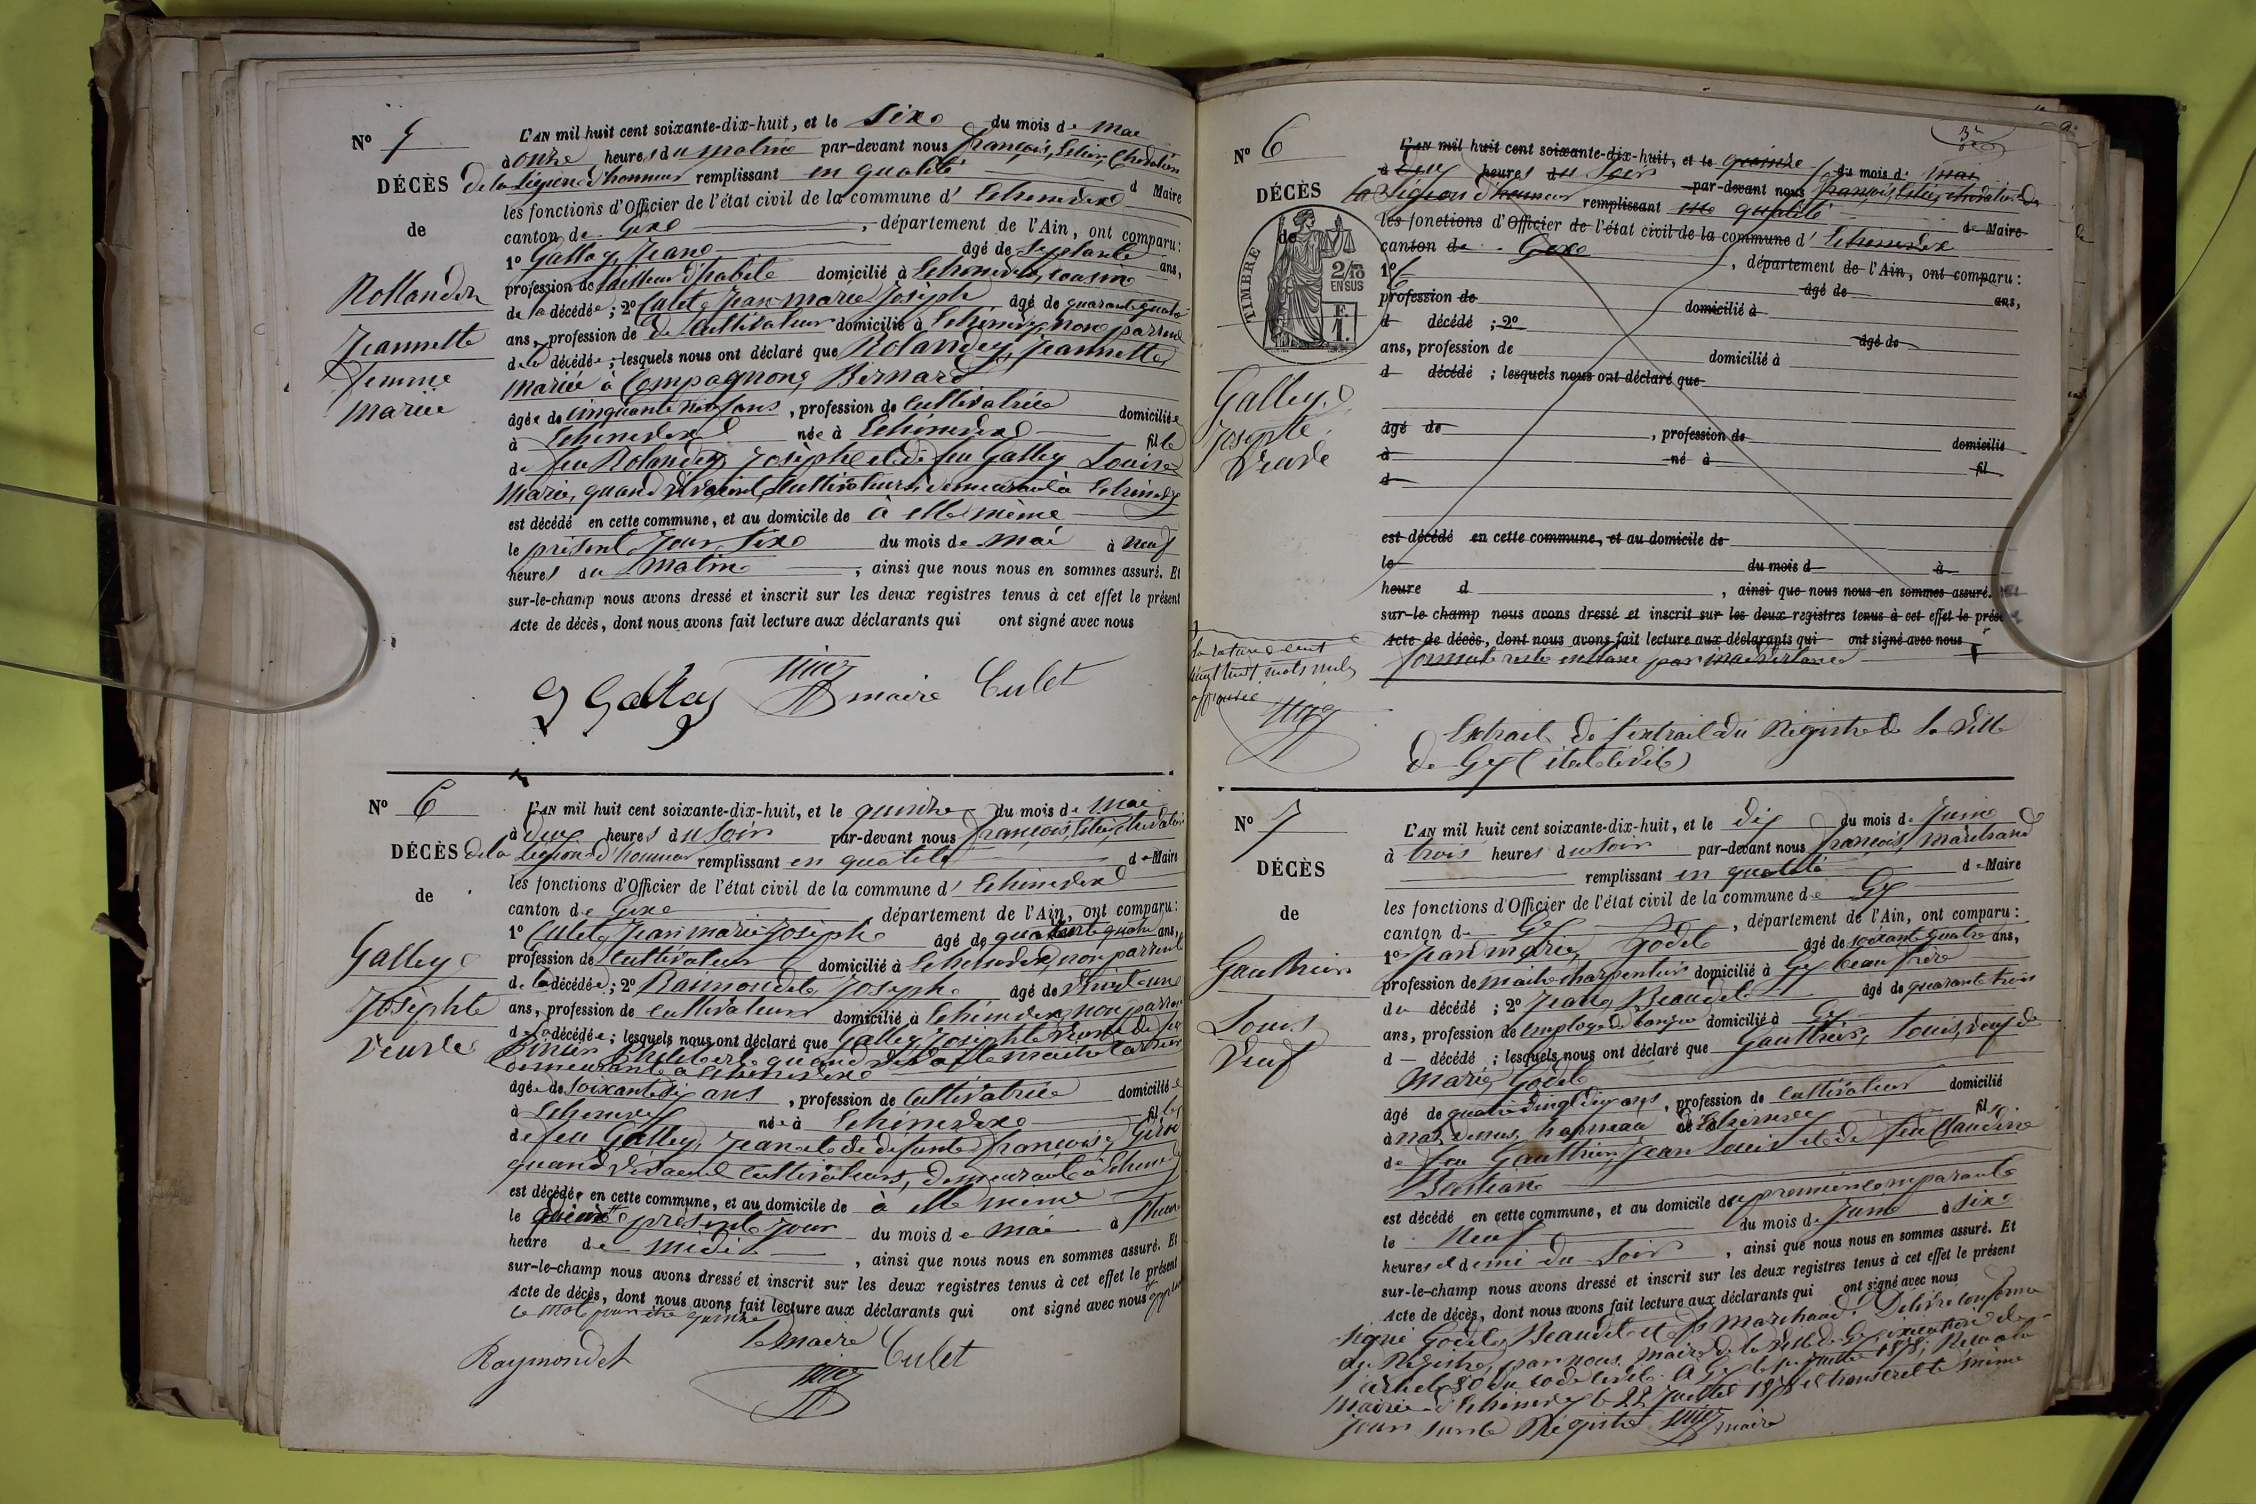 N° 5
DÉCÈS
de
Rollandin
Jeannette
femme
mariée
L'AN mil huit cent soixante-dix-huit, et le Six du mois de mai
à onze heures du matin par-devant nous François, Chevalier
de la Légion d'honneur remplissant en qualité de Maire
les fonctions d'Officier de l'état civil de la commune d' Echenevex
canton de Gex, département de l'Ain, ont comparu :
1° Gallay Jean âgé de septante ans,
profession de tailleur d'habits domicilié à Echenevex, cousin
de la décédée ; 2° Culet Jean marie Joseph âgé de quarante quatre
ans, profession de Cultivateur domicilié à Echenevex, non parent
de la décédée ; lesquels nous ont déclaré que Rolandey, Jeannette,
mariée à Compagnon, Bernard
âgée de cinquante neuf ans, profession de cultivatrice domiciliée
à Echenevex née à Echenevex fille
de feu Rolandey Joseph et de feu Galley Louise
Marie, quand vivaient Cultivateurs, demeurant à Echenevex
est décédé en cette commune, et au domicile de à elle même
le présent jour six du mois de mai à neuf
heures du matin, ainsi que nous nous en sommes assuré. Et
sur-le-champ nous avons dressé et inscrit sur les deux registres tenus à cet effet le présent
Acte de décès, dont nous avons fait lecture aux déclarants qui ont signé avec nous
J Gallay maire Culet
N° 6
DÉCÈS
de
Galley
Josephte
veuve
L'AN mil huit cent soixante-dix-huit, et le quinze du mois de mai
à deux heures du soir par-devant nous François, chevalier
de la Légion d'honneur remplissant en qualité de Maire
les fonctions d'Officier de l'état civil de la commune d' Echenevex
canton de Gex département de l'Ain, ont comparu :
1° Culet, Jean marie Joseph âgé de quarante quatre ans,
profession de Cultivateur domicilié à Echenevex, non parent
de la décédée ; 2° Raimondet, Joseph âgé de vingt une
ans, profession de cultivateur domicilié à Echenevex, non parent
de la décédée ; lesquels nous ont déclaré que Galley Josephte Veuve de feu
Philibert quand vivait maître
demeurant à Echenevex
âgée de soixante dix ans, profession de Cultivatrice domiciliée
à Echenevex née à Echenevex fille
de feu Galley, Jean et de défunte françoise,
quand vivaient Cultivateurs, demeurant à Echenevex
est décédée en cette commune, et au domicile de à elle même
le quinze présent jour du mois de mai à
heure de midi, ainsi que nous nous en sommes assuré. Et
sur-le-champ nous avons dressé et inscrit sur les deux registres tenus à cet effet le présent
Acte de décès, dont nous avons fait lecture aux déclarants qui ont signé avec nous
le mot quinze
Raymondet le maire Culet
N° 6
DÉCÈS
de
TIMBRE
2/10
EN SUS
F.
1.
Galley
Josephte
Veuve
L'AN mil huit cent soixante-dix-huit, et le quinze du mois de mai
à deux heures du soir par-devant nous François, chevalier de
la Légion d'honneur remplissant en qualité de Maire
les fonctions d'Officier de l'état civil de la commune d' Echenevex
canton de Gex, département de l'Ain, ont comparu :
1° âgé de ans,
profession de domicilié à
d décédé ; 2° âgé de
ans, profession de domicilié à
d décédé ; lesquels nous ont déclaré que
âgé de, profession de domicilié
à né à fil
d
est décédé en cette commune, et au domicile de
le du mois d à
heure d, ainsi que nous nous en sommes assuré.
sur-le champ nous avons dressé et inscrit sur les deux registres tenus à cet effet le
Acte de décès, dont nous avons fait lecture aux déclarants qui ont signé avec nous
formule restée en blanc par inadvertance
la rature de cent
vingt huit mots nuls
approuvée
Extrait de l'extrait du Régistre de la ville
de Gex (état civil)
N° 7
DÉCÈS
de
Gauthier
Louis
veuf
L'AN mil huit cent soixante-dix-huit, et le dix du mois de Juin
à trois heures du soir par-devant nous François, Marchand
remplissant en qualité de Maire
les fonctions d'Officier de l'état civil de la commune de Gex
canton de Gex, département de l'Ain, ont comparu :
1° Jean marie, Godet âgé de soixante quatre ans,
profession de maître charpentier domicilié à Gex beau frère
du décédé ; 2° Jean, Beaudet âgé de quarante trois
ans, profession de employé de banque domicilié à Gex
d décédé ; lesquels nous ont déclaré que Gauthier, Louis, veuf de
Marie, Godet
âgé de quatre vingt dix ans, profession de cultivateur domicilié
à hameau de Echenevex fils
de feu Gauthier, Jean Louis et de feu Claudine
Bastian
est décédé en cette commune, et au domicile du premier comparant
le Neuf du mois de Juin à six
heures et demi du soir, ainsi que nous nous en sommes assuré. Et
sur-le-champ nous avons dressé et inscrit sur les deux registres tenus à cet effet le présent
Acte de décès, dont nous avons fait lecture aux déclarants qui ont signé avec nous
signé Godet, Beaudet et fs Marchand. Délivré conforme
au Régistre, par nous, maire de la ville de Gex, exécution de
l'article 80 du code civil. A Gex le 1er Juillet 1878, Reçu à la
Mairie d'Echenevex le 22 Juillet 1878 et transcrit le même
jour sur le Régistre maire